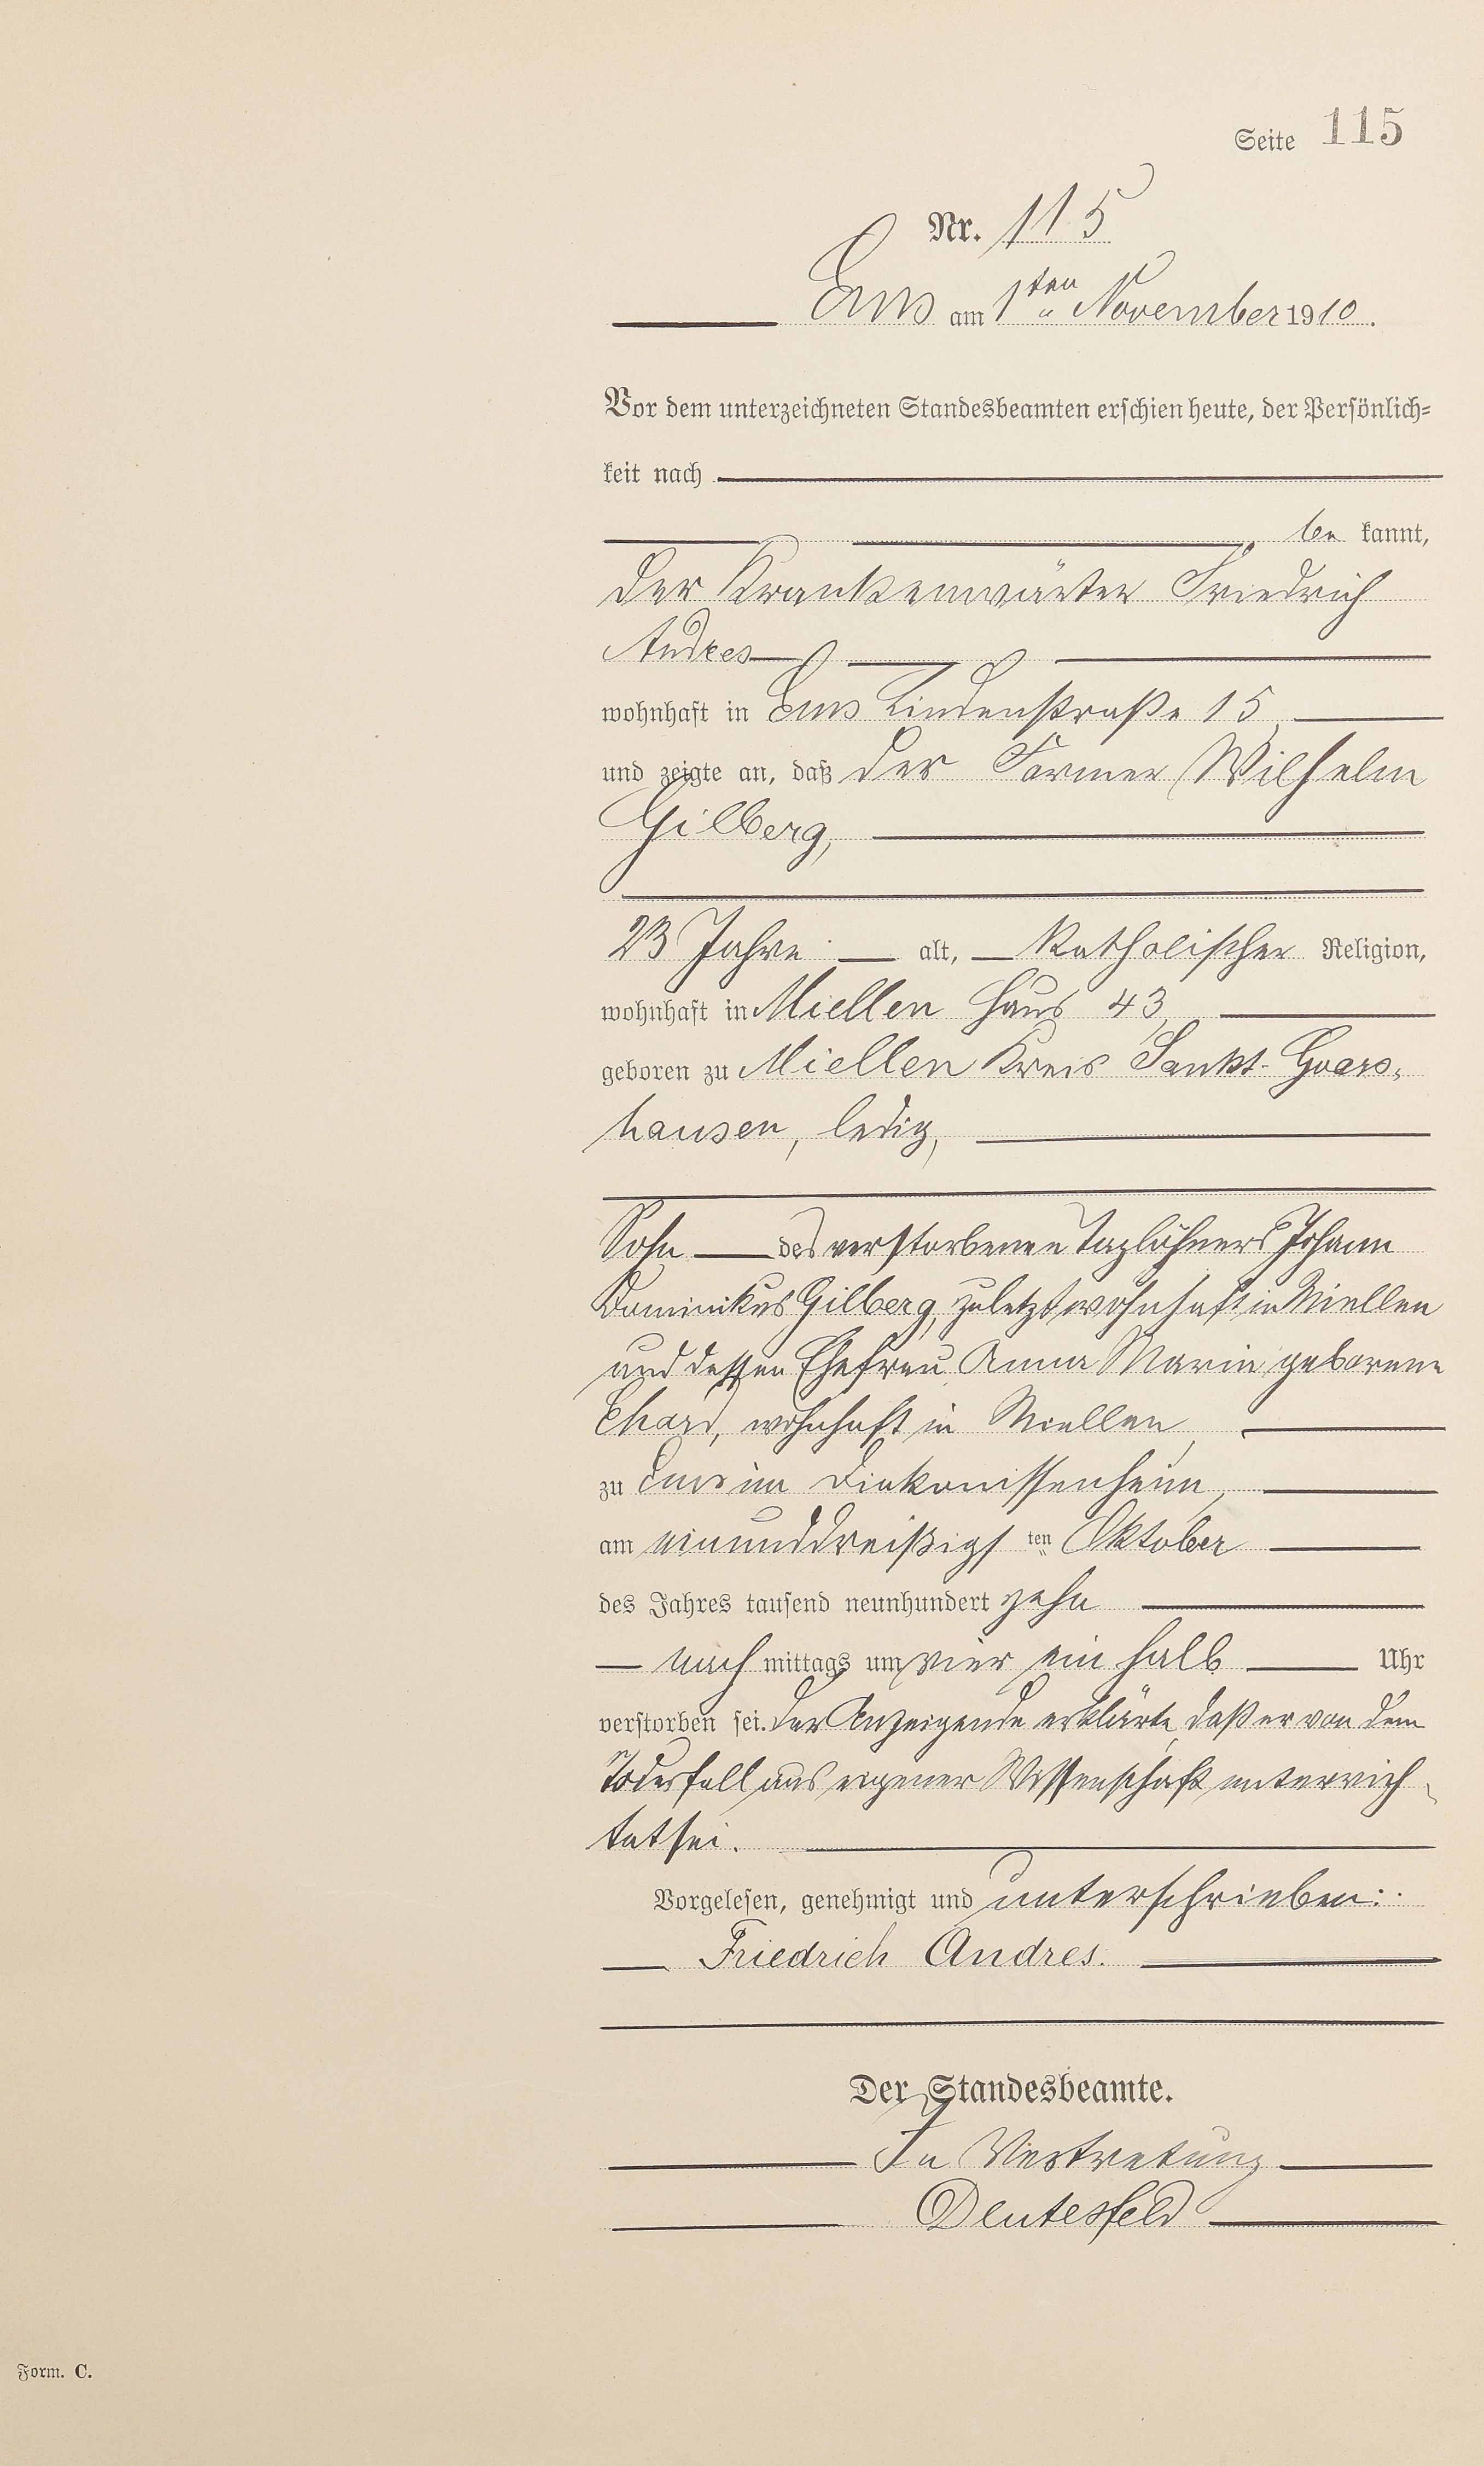 Seite 115
Nr. 115
Ems am 1ten November 1910.
Vor dem unterzeichneten Standesbeamten erschien heute, der Persönlich-
keit nach
be kannt,
der Krankenwärter Friedrich
Andres
wohnhaft in Ems Lindenstraße 15,
und zeigte an, daß der Former Wilhelm
Gilberg,
23 Jahre alt, katholischer Religion,
wohnhaft in Miellen Haus 43,
geboren zu Miellen Kreis Sankt-Goars-
hausen, ledig,
Sohn des verstorbenen Taglöhners Johann
Dominikus Gilberg, zuletzt wohnhaft in Miellen
und dessen Ehefrau Anna Maria geborene
wohnhaft in Miellen,
zu Ems im Diakonissenheim,
am einunddreißigsten Oktober
des Jahres tausend neunhundert zehn
nachmittags um vier ein halb Uhr
verstorben sei. Der Anzeigende erklärte, daß er von dem
Todesfall aus eigener Wissenschaft unterrich-
tet sei.
Vorgelesen, genehmigt und unterschrieben:
Friedrich Andres.
Der Standesbeamte.
In Vertretung
Deutesfeld
Form. C.